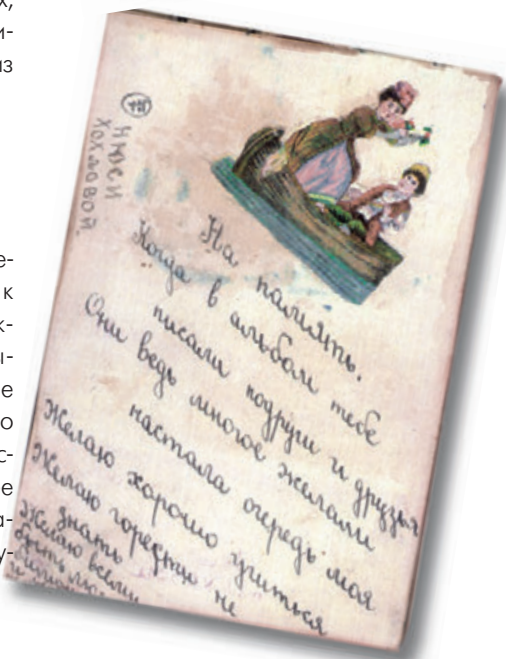 х,
и-
из
е-
к
к-
ы-
е
о
с-
е
а-
у-
Нюси
Хохловой.
На память.
Когда в альбом тебе
писали подруги и друзья
Они ведь многое желали
настала очередь моя
Желаю хорошо учиться
Желаю горести не
знать
Желаю всеми
быть